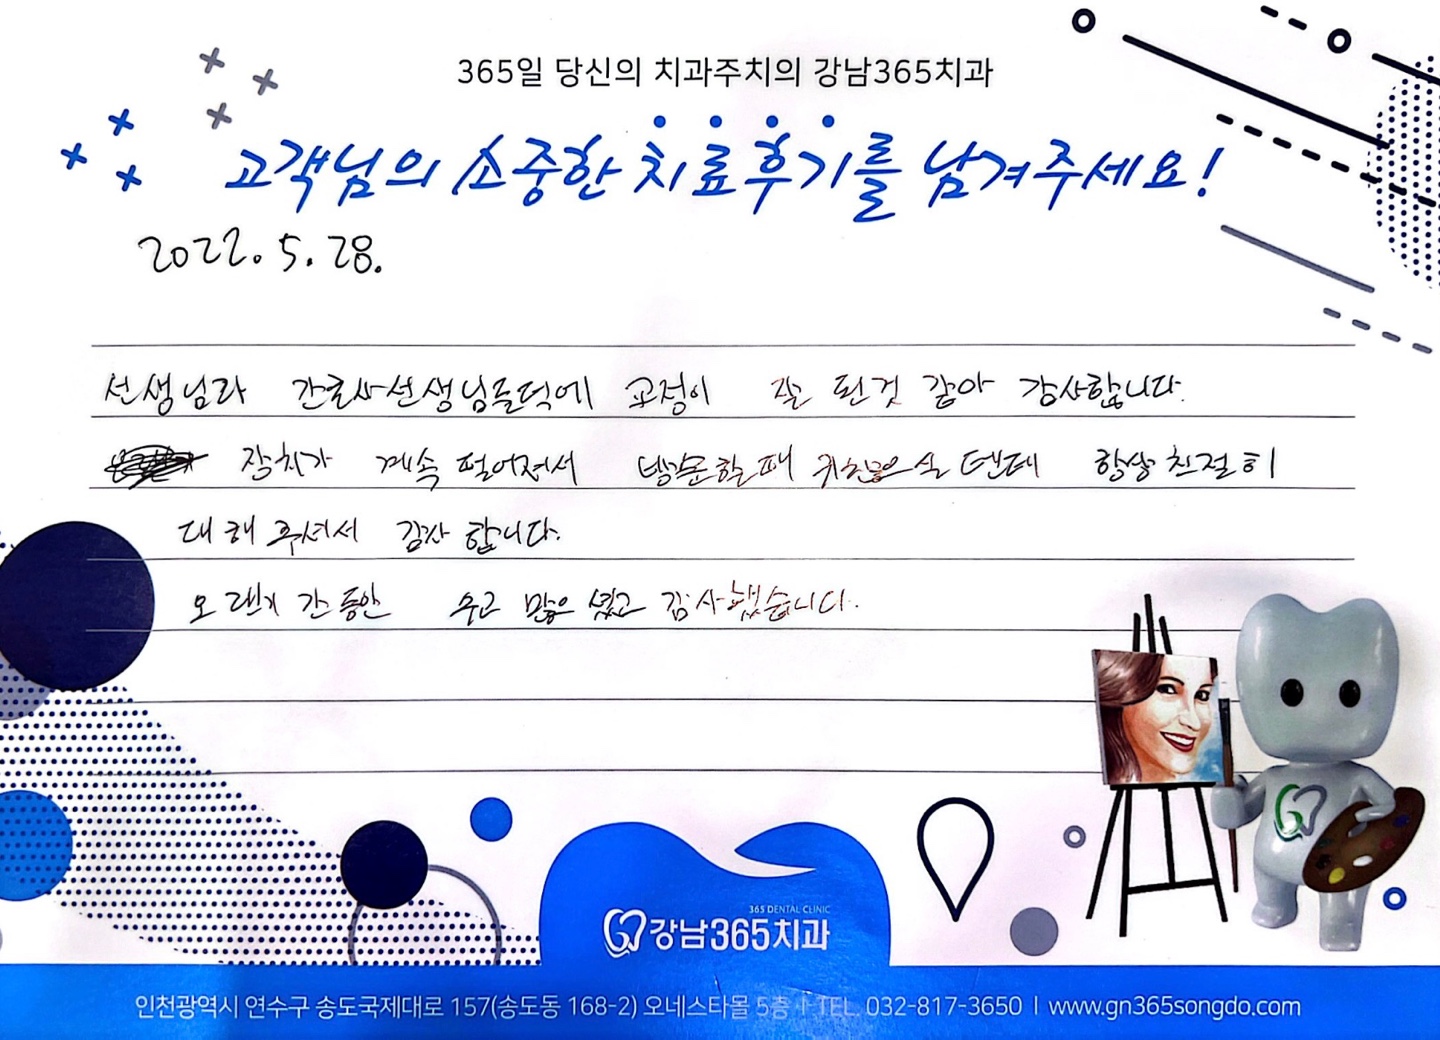 365일 당신의 치과주치의 강남365치과
고객님의 소중한 치료후기를 남겨주세요!
2022. 5. 28.
선생님과 간호사선생님들덕에 교정이 잘 된것 같아 감사합니다.
장치가 계속 떨어져서 방문할때 귀찮으실 텐데 항상 친절히
대해 주셔서 감사 합니다.
오랜기간동안 수고 많으셨고 감사했습니다.
365 DENTAL CLINIC
강남365치과
인천광역시 연수구 송도국제대로 157(송도동 168-2) 오네스타몰 5층 | TEL. 032-817-3650 | www.gn365songdo.com